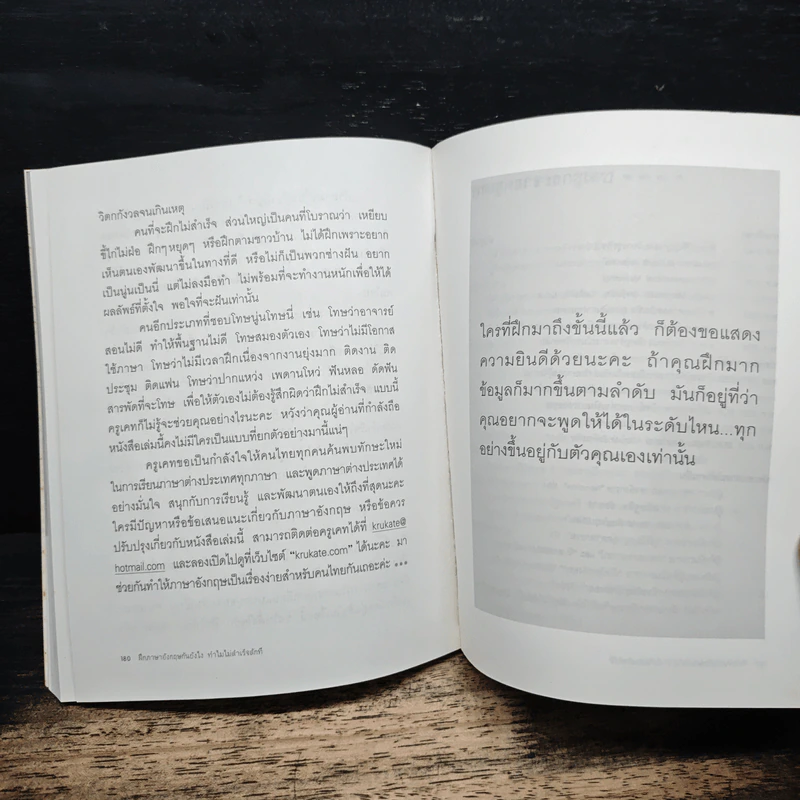 วิตกกังวลจนเกินเหตุ
คนที่จะฝึกไม่สำเร็จ ส่วนใหญ่เป็นคนที่โบราณว่า เหยียบ
ขี้ไก่ไม่ฝ่อ ฝึกๆ หยุดๆ หรือฝึกตามชาวบ้าน ไม่ได้ฝึกเพราะอยาก
เห็นตนเองพัฒนาขึ้นในทางที่ดี หรือไม่ก็เป็นพวกช่างฝัน อยาก
เป็นนู่นเป็นนี่ แต่ไม่ลงมือทำ ไม่พร้อมที่จะทำงานหนักเพื่อให้ได้
ผลลัพธ์ที่ตั้งใจ พอใจที่จะฝันเท่านั้น
คนอีกประเภทที่ชอบโทษนู่นโทษนี่ เช่น โทษว่าอาจารย์
สอนไม่ดี ทำให้พื้นฐานไม่ดี โทษสมองตัวเอง โทษว่าไม่มีโอกาส
ใช้ภาษา โทษว่าไม่มีเวลาฝึกเนื่องจากงานยุ่งมาก ติดงาน ติด
ประชุม ติดแฟน โทษว่าปากแหว่ง เพดานโหว่ ฟันหลอ ดัดฟัน
สารพัดที่จะโทษ เพื่อให้ตัวเองไม่ต้องรู้สึกผิดว่าฝึกไม่สำเร็จ แบบนี้
ครูเคทก็ไม่รู้จะช่วยคุณอย่างไรนะคะ หวังว่าคุณผู้อ่านที่กำลังถือ
หนังสือเล่มนี้คงไม่มีใครเป็นแบบที่ยกตัวอย่างมานี้แน่ๆ
ครูเคทขอเป็นกำลังใจให้คนไทยทุกคนค้นพบทักษะใหม่
ในการเรียนภาษาต่างประเทศทุกภาษา และพูดภาษาต่างประเทศได้
อย่างมั่นใจ สนุกกับการเรียนรู้ และพัฒนาตนเองให้ถึงที่สุดนะคะ
ใครมีปัญหาหรือข้อเสนอแนะเกี่ยวกับภาษาอังกฤษ หรือข้อควร
ปรับปรุงเกี่ยวกับหนังสือเล่มนี้ สามารถติดต่อครูเคทได้ที่ krukate@
hotmail.com และลองเปิดไปดูที่เว็บไซต์ "krukate.com" ได้นะคะ มา
ช่วยกันทำให้ภาษาอังกฤษเป็นเรื่องง่ายสำหรับคนไทยกันเถอะค่ะ ***
180 ฝึกภาษาอังกฤษกันยังไง ทำไมไม่สำเร็จสักที
ใครที่ฝึกมาถึงขั้นนี้แล้ว ก็ต้องขอแสดง
ความยินดีด้วยนะคะ ถ้าคุณฝึกมาก
ข้อมูลก็มากขึ้นตามลำดับ มันก็อยู่ที่ว่า
คุณอยากจะพูดให้ได้ในระดับไหน...ทุก
อย่างขึ้นอยู่กับตัวคุณเองเท่านั้น